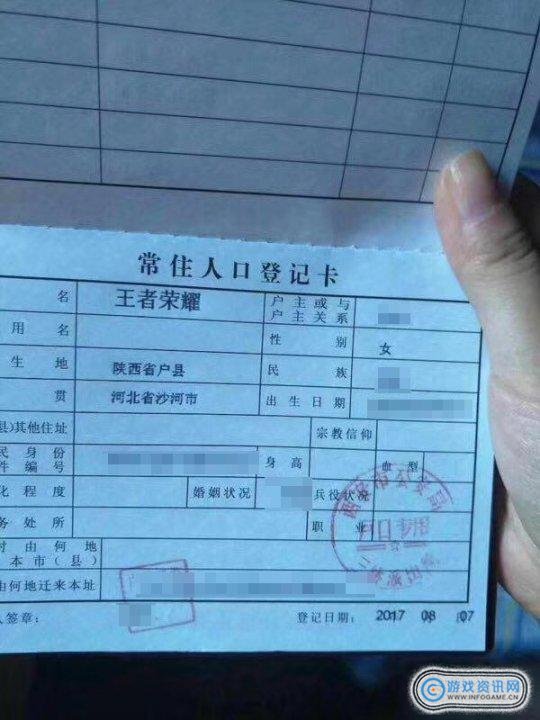 常住人口登记卡
名 王者荣耀 户主或与
户主关系
用名 性别 女
生地 陕西省户县 民族
贯 河北省沙河市 出生日期
县)其他住址 宗教信仰
民身份
件编号 身高 血型
化程度 婚姻状况 兵役状况
务处所 职业
时由何地
本市(县)
由何地迁来本址
人签章: 登记日期: 2017 08 07
游戏资讯网
WWW.INFOGAME.CN